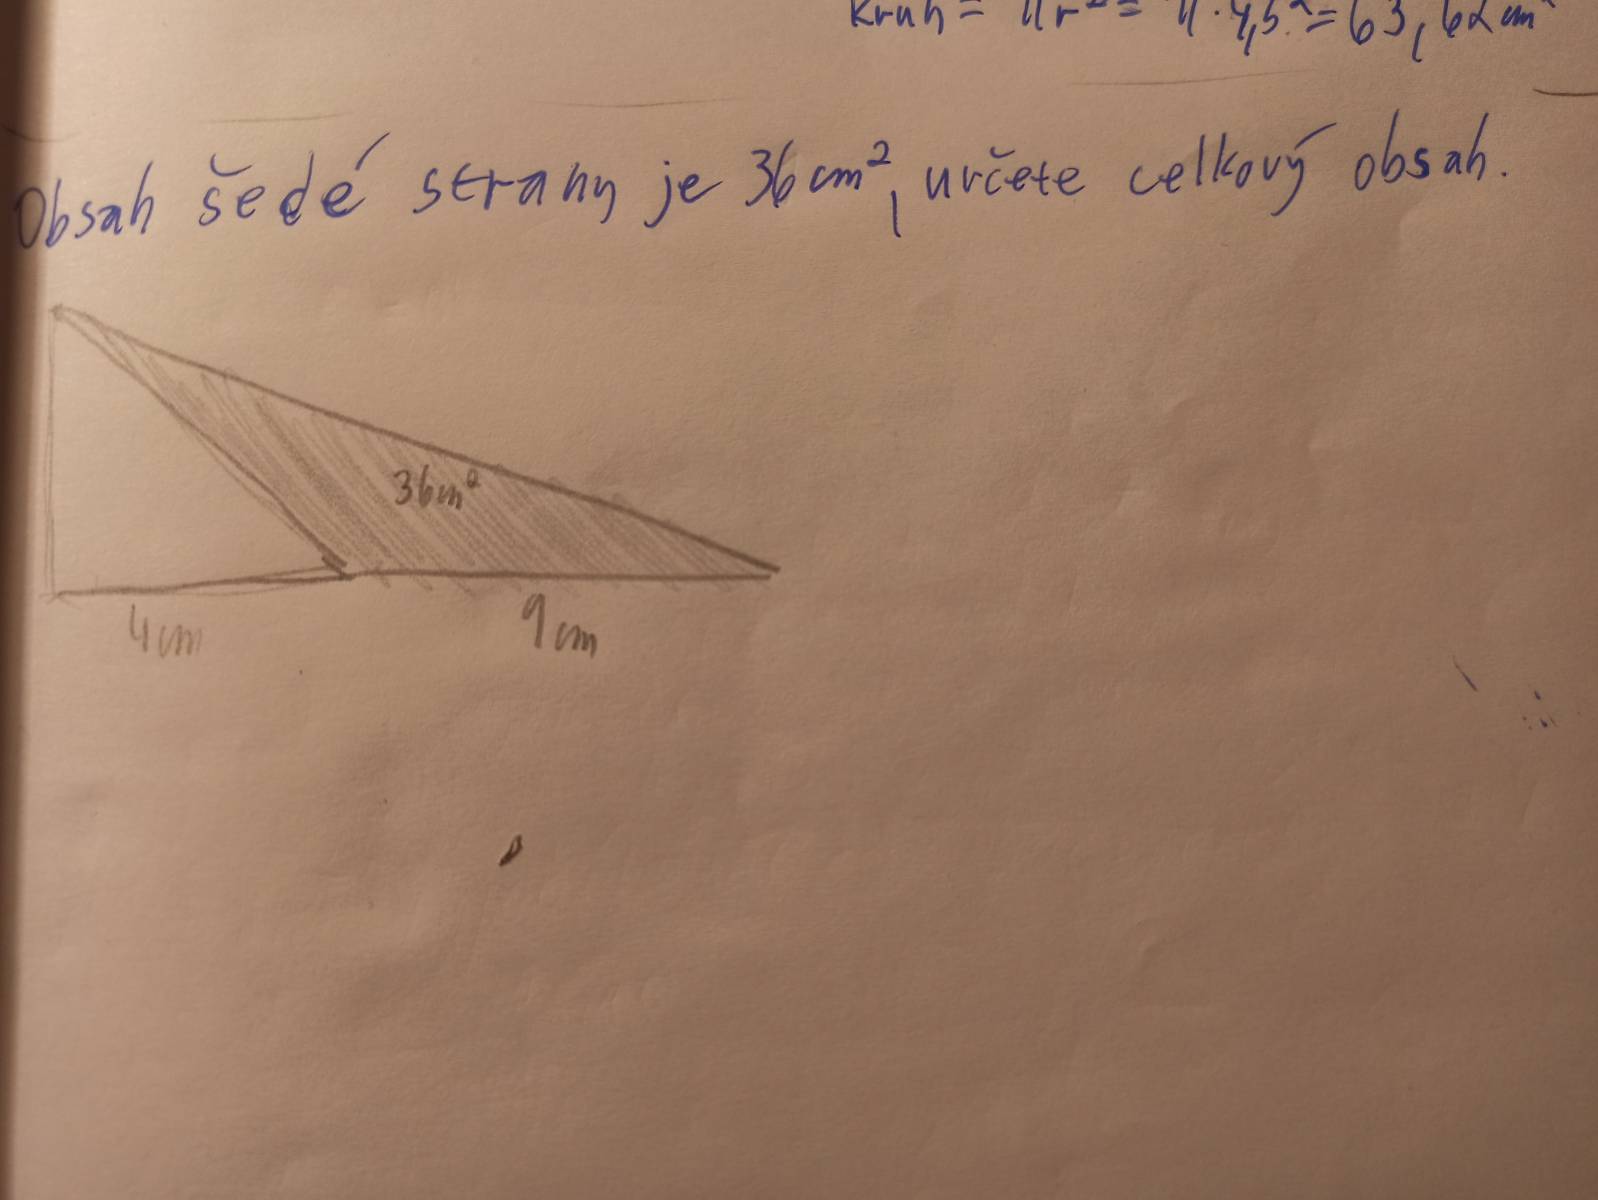 Kruh = πr² = π · 4,5² = 63,62 cm²
Obsah šedé strany je 36 cm², určete celkový obsah.
36cm²
4cm
9cm